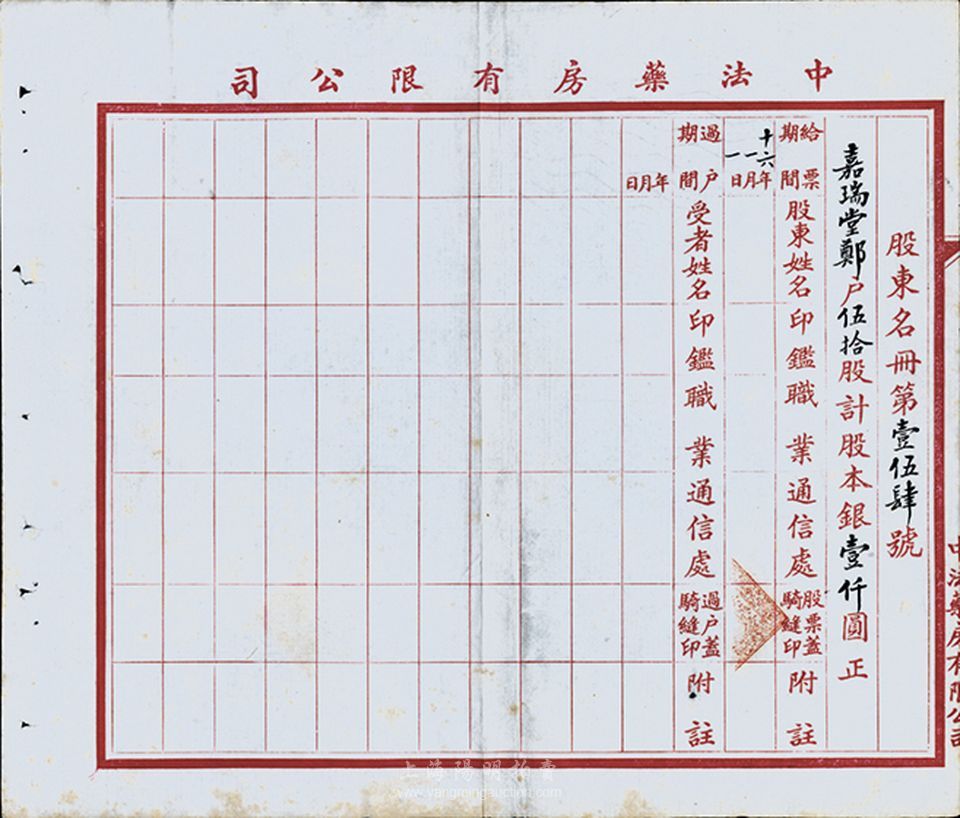 中法藥房有限公司
股東名冊第壹伍肆號
嘉瑞堂鄭户伍拾股計股本銀壹仟圓正
給票期間
股東姓名
印鑑
職業
通信處
股票蓋騎縫印
附註
十六年一月一日
過户期間
受者姓名
印鑑
職業
通信處
過户蓋騎縫印
附註
年月日
中法藥房有限公司
上海陽明拍賣
www.yangmingauction.com